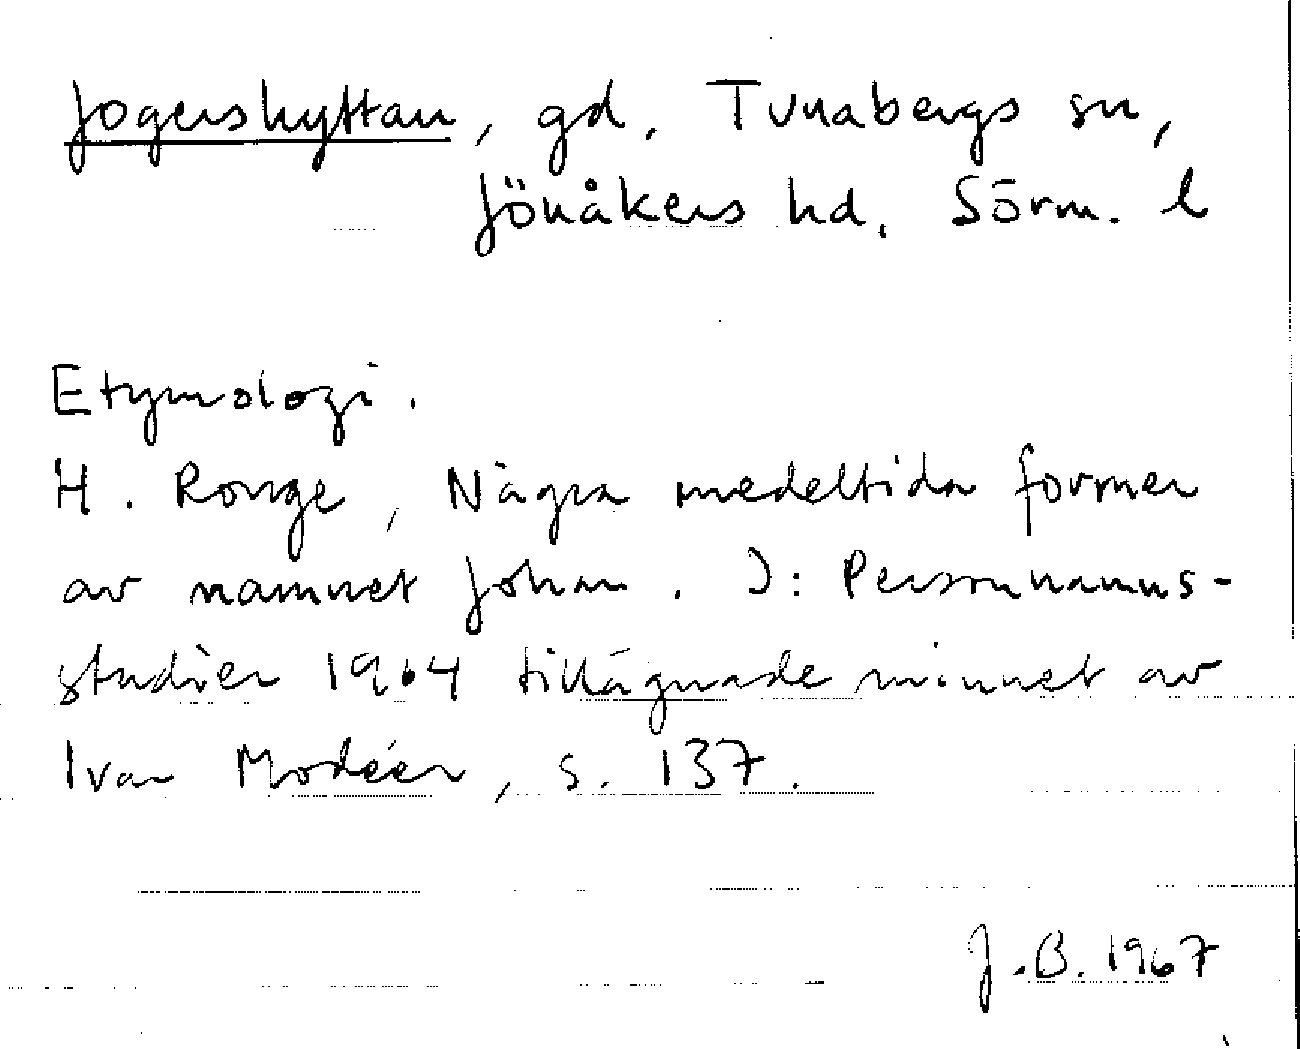 Jogershyttan, gd, Tunabergs sn,
Jönåkers hd, Sörm. l
Etymologi.
H. Ronge, Några medeltida former
av namnet Johan. I: Personnamns-
studier 1964 tillägnade minnet av
Ivar Modéer, s. 137.
J.B. 1967